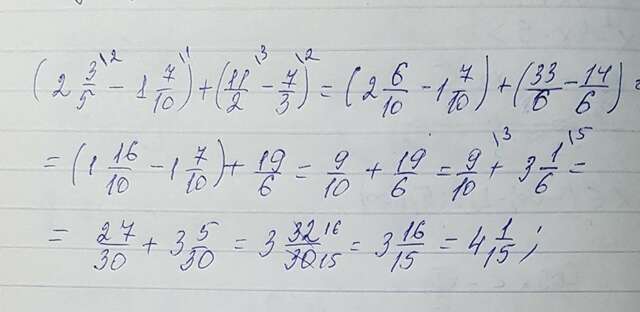 (2 3/5 \2 − 1 7/10 \1) + (11/2 \3 − 7/3 \2) = (2 6/10 − 1 7/10) + (33/6 − 14/6) =
= (1 16/10 − 1 7/10) + 19/6 = 9/10 + 19/6 = 9/10 \3 + 3 1/6 \5 =
= 27/30 + 3 5/30 = 3 32/30 16/15 = 3 16/15 = 4 1/15 ;